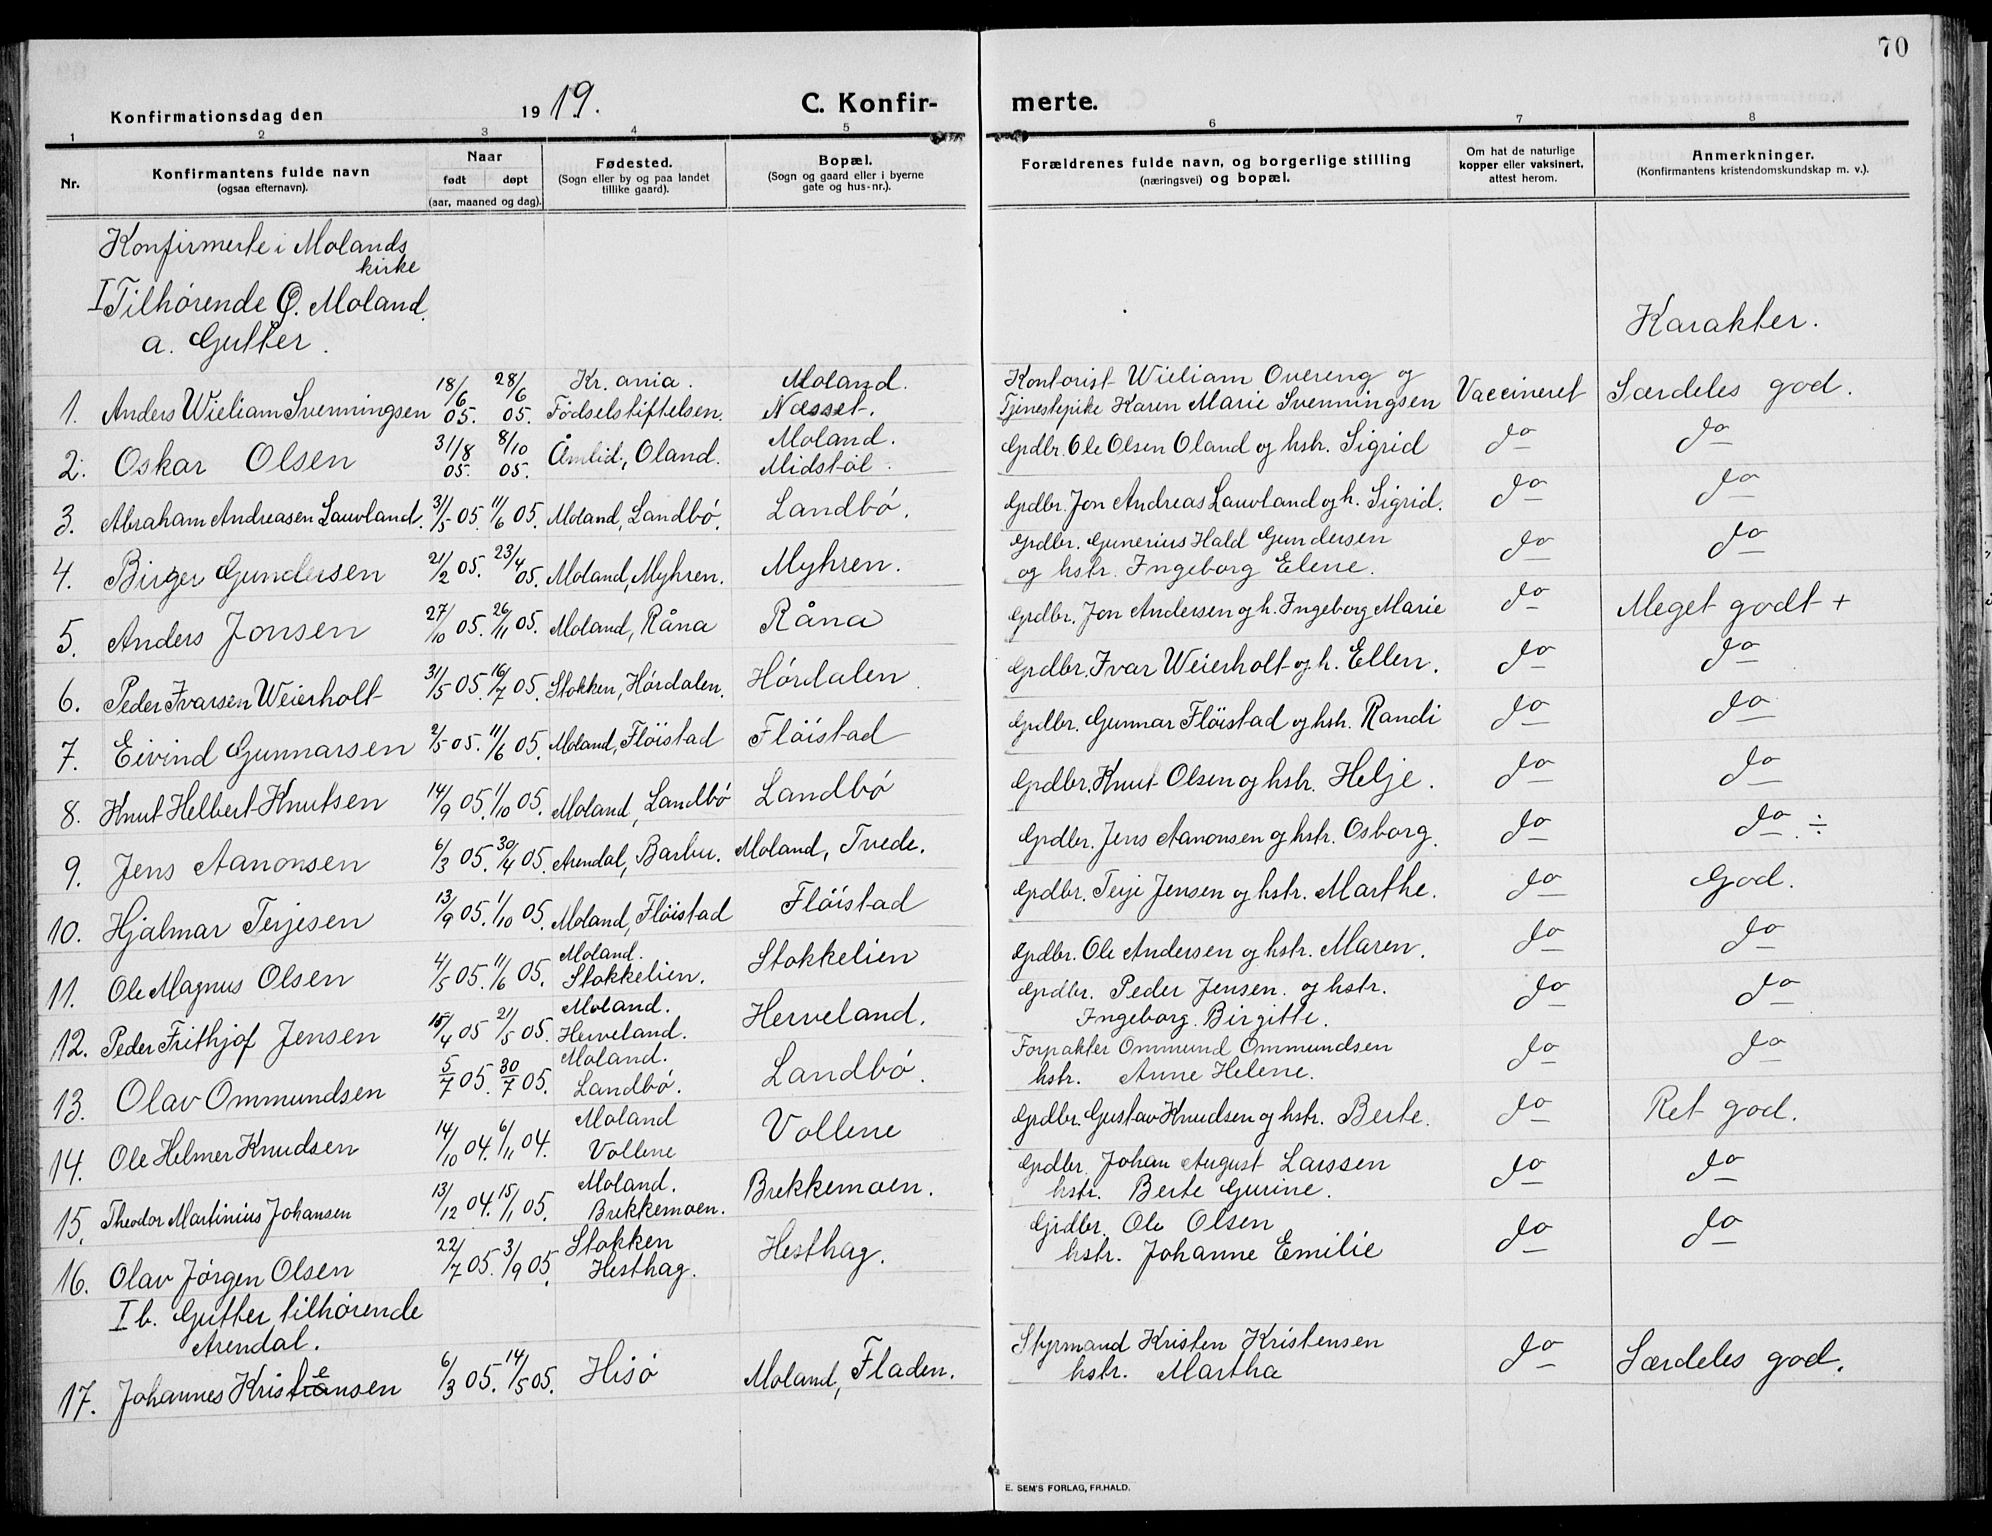 70
Konfirmationsdag den 1919. C. Konfirmerte.
1 2 3 4 5 6 7 8
Nr. Konfirmantens fulde navn (ogsaa efternavn). Naar født døpt (aar, maaned og dag). Fødested. (Sogn eller by og paa landet tillike gaard). Bopæl. (Sogn og gaard eller i byerne gate og hus-nr.). Forældrenes fulde navn, og borgerlige stilling (næringsvei) og bopæl. Om hat de naturlige kopper eller vaksinert, attest herom. Anmerkninger. (Konfirmantens kristendomskundskap m. v.).
Konfirmerte i Molands kirke
I Tilhørende Ø. Moland.
a. Gutter. Karakter.
1. Anders Wieliam Svenningsen 18/6 05. 28/6 05. Kr. ania. Fødselstiftelsen. Moland. Næsset. Kontorist Wieliam Overeng og Tjenestepike Karen Marie Svenningsen Vaccineret Særdeles god.
2. Oskar Olsen 31/8 05. 8/10 05. Åmlid, Oland. Moland. Midstøl. Grdbr. Ole Olsen Oland og hstr. Sigrid do do
3. Abraham Andreasen Lauvland. 31/5 05. 11/6 05. Moland, Landbø. Landbø. Grdbr. Jon Andreas Lauvland og h. Sigrid. do do
4. Birger Gundersen 21/2 05. 23/4 05. Moland, Myhren. Myhren. Grdbr. Gunerius Hald Gundersen og hstr. Ingeborg Elene. do do
5. Anders Jonsen 27/10 05. 26/11 05. Moland, Råna Råna Grdbr. Jon Andersen og h. Ingeborg Marie do Meget godt +
6. Peder Ivarsen Weierholt 31/5 05. 16/7 05. Stokken, Hørdalen. Hørdalen Grdbr. Ivar Weierholt og h. Ellen. do do
7. Eivind Gunnarsen 2/5 05. 11/6 05. Moland, Fløistad Fløistad Grdbr. Gunnar Fløistad og hstr. Randi do do
8. Knut Helbert Knutsen 14/9 05. 1/10 05. Moland, Landbø Landbø Grdbr. Knut Olsen og hstr. Helje. do do
9. Jens Aanonsen 6/3 05. 30/4 05. Arendal, Barbu. Moland, Tvede. Grdbr. Jens Aanonsen og hstr. Osborg. do do ÷
10. Hjalmar Terjesen 13/9 05. 1/10 05. Moland, Fløistad Fløistad Grdbr. Terje Jensen og hstr. Marthe. do God.
11. Ole Magnus Olsen 4/5 05. 11/6 05. Moland. Stokkelien. Stokkelien Grdbr. Ole Andersen og hstr. Maren. do do
12. Peder Frithjof Jensen 15/4 05 21/5 05. Moland. Herveland. Herveland. Grdbr. Peder Jensen. og hstr. Ingeborg Birgitte. do do
13. Olav Ommundsen 5/7 05. 30/7 05. Moland. Landbø. Landbø. Forpakter Ommund Ommundsen hstr. Anne Helene. do do
14. Ole Helmer Knudsen 14/10 04. 6/11 04. Moland Vollene Vollene Grdbr. Gustav Knudsen og hstr. Berte. do Ret god.
15. Theodor Martinius Johansen 13/12 04. 15/1 05. Moland. Brekkemoen. Brekkemoen. Grdbr. Johan August Larssen hstr. Berte Gurine. do do
16. Olav Jørgen Olsen 22/7 05. 3/9 05. Stokken Hesthag. Hesthag. Gjrdbr. Ole Olsen hstr. Johanne Emilie do do
I b. Gutter tilhørende
Arendal.
17. Johannes Kristensen 6/3 05. 14/5 05. Hisø Moland, Fladen. Styrmand Kristen Kristensen hstr. Martha do Særdeles god.
E. SEM'S FORLAG, FR.HALD.